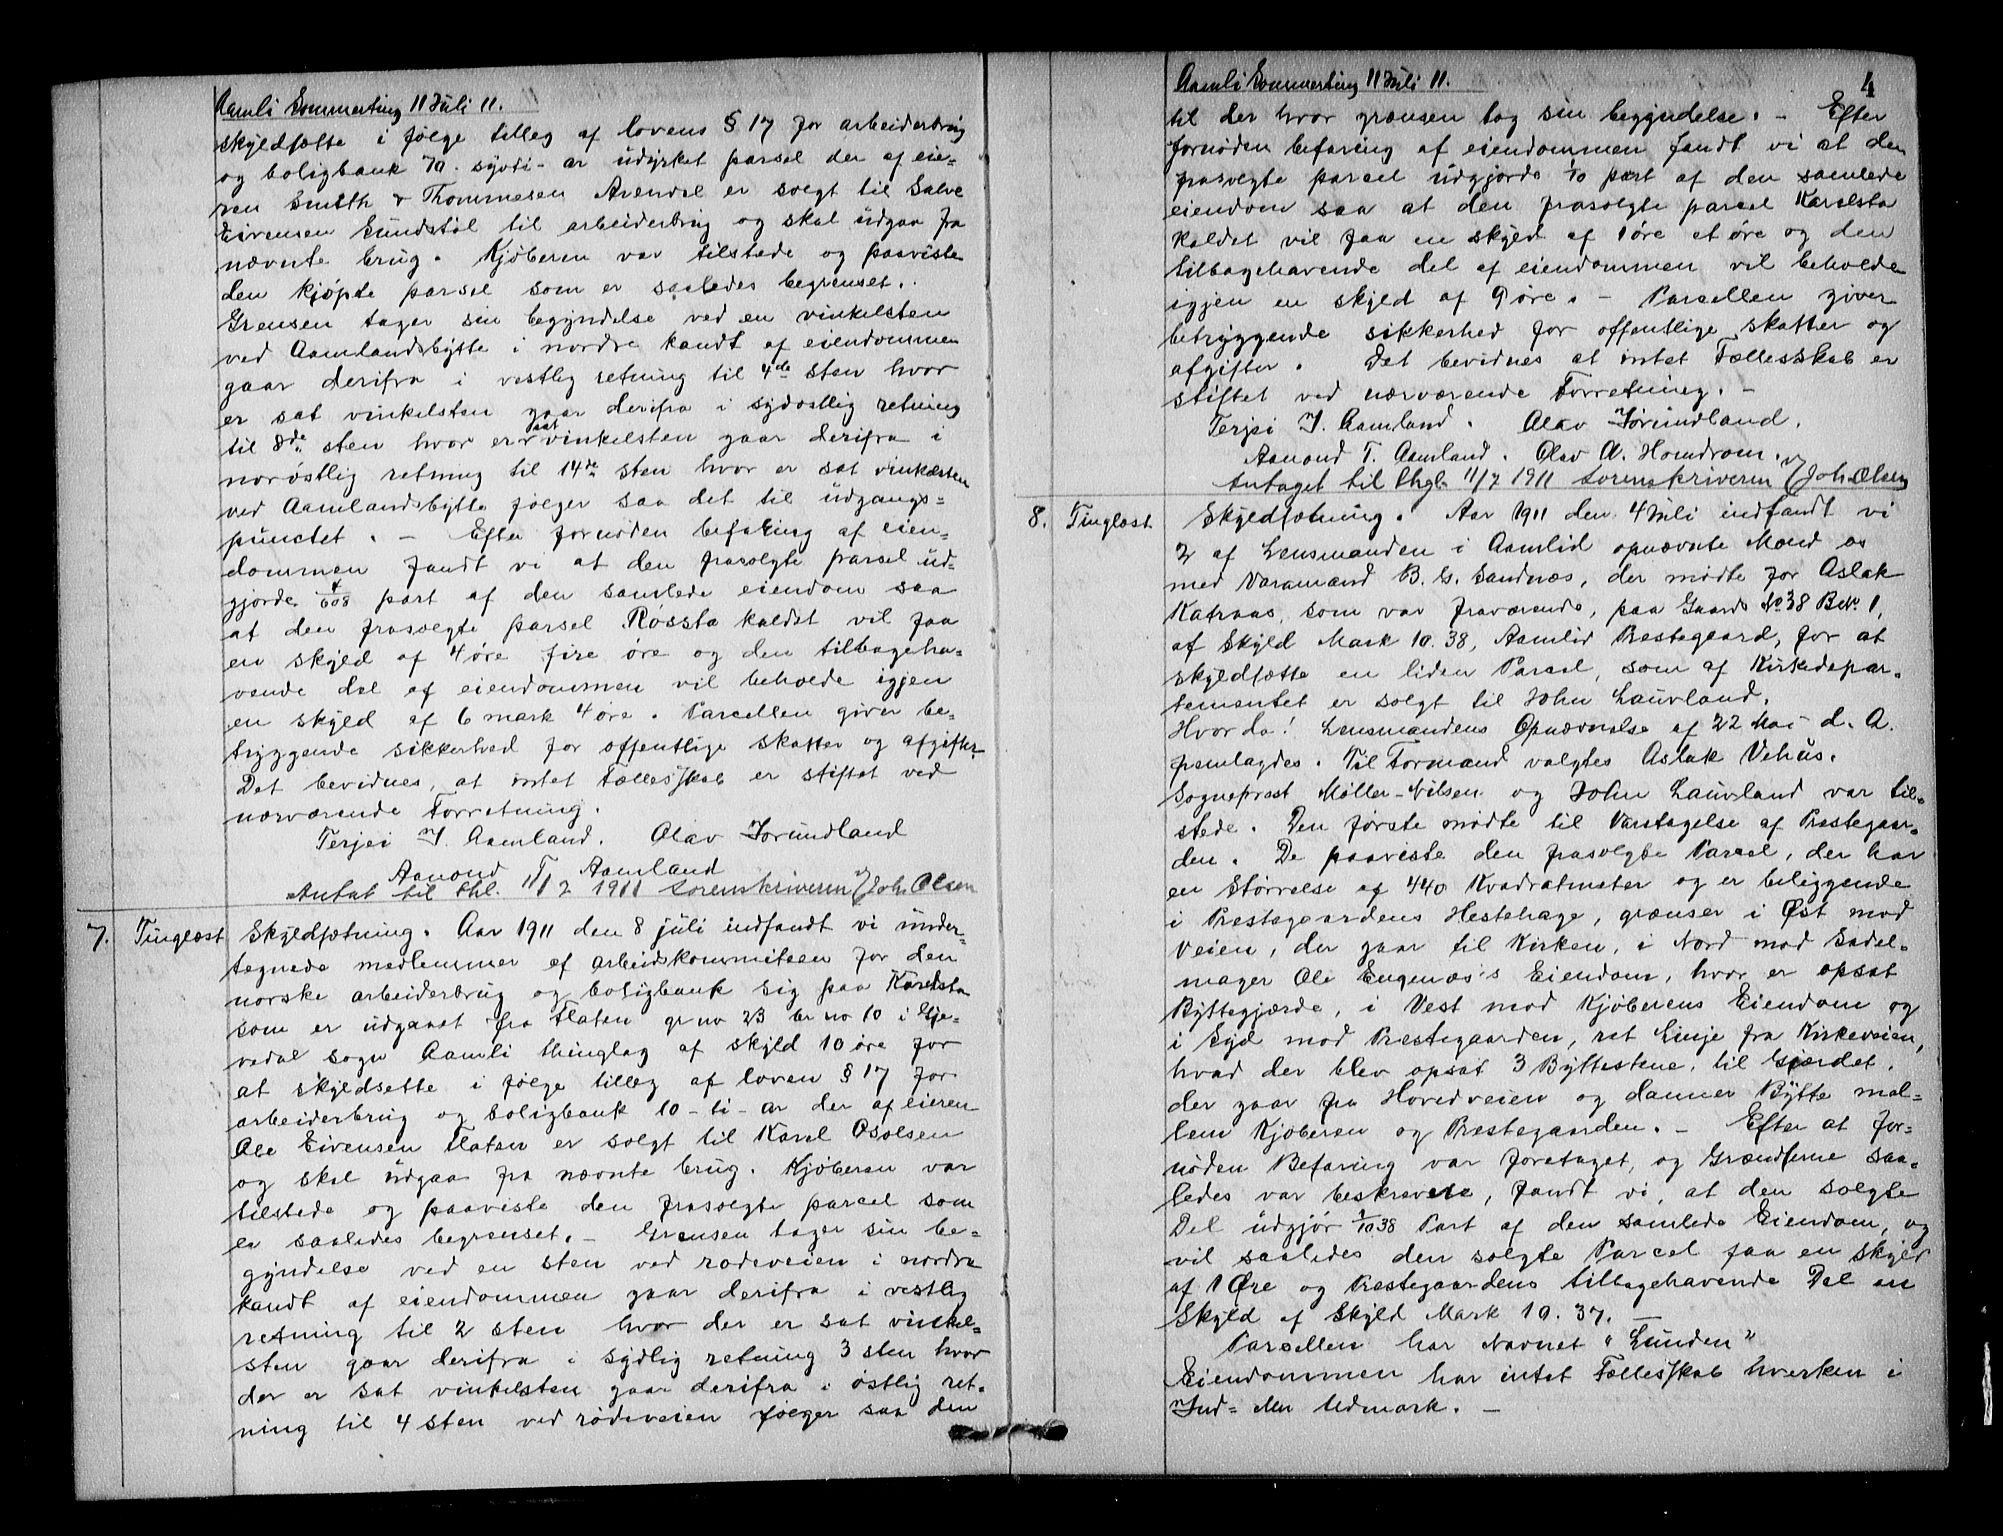 Aamli Sommerting 11 Juli 11.
skyldsætte i følge tilleg af lovens § 17 for arbeiderbrug
og boligbank 70 - sytti - ar udyrket parsel der af eie-
ren Smith & Thommesen Arendal er solgt til Salve
Eivensen Sundstøl til arbeiderbrug og skal udgaa fra
nævnte brug. Kjøberen var tilstede og paaviste
den kjøpte parsel som er saaledes begrenset.
Grensen tager sin begyndelse ved en vinkelsten
ved Aamlandsbytte i nordre kandt af eiendommen
gaar derifra i vestlig retning til 4de sten hvor
er sat vinkelsten gaar derifra i sydøstlig retning
til 8de sten hvor er sat vinkelsten gaar derifra i
norøstlig retning til 14de sten hvor er sat vinkelsten
ved Aamlandsbytte følger saa det til udgangs=
punctet. - Efter fornøden befaring af eien=
dommen fandt vi at den frasolgte parsel ud=
gjorde 4/608 part af den samlede eiendom saa
at den frasolgte parsel Røssta kaldet vil faa
en skyld af 4 øre fire øre og den tilbageha=
vende del af eiendommen vil beholde igjen
en skyld af 6 mark 4 øre. Parcellen giver be=
tryggende sikkerhed for offentlige skatter og afgifter.
Det bevidnes, at intet Fællesskab er stiftet ved
nærværende Forretning.
Terjei J. Aamland. Olav Jorundland
Aanond T. Aamland
Antat til thl. 11/7 1911 Sorenskriveren Joh. Olsen
7. Tinglæst Skyldsætning. Aar 1911 den 8 juli indfandt vi under=
tegnede medlemmer af arbeidskommiteen for den
norske arbeiderbrug og boligbank sig paa Karelsta
som er udgaaet fra Flaten gr no 23 br no 10 i Gje=
vedal sogn Aamli thinglag af skyld 10 øre for
at skyldsette i følge tilleg af loven § 17 for
arbeiderbrug og boligbank 10 - ti - ar der af eieren
Ole Eivensen Flaten er solgt til Karel Osolsen
og skal udgaa fra nævnte brug. Kjøberen var
tilstede og paaviste den frasolgte parcel som
er saaledes begrenset. - Grensen tager sin be=
gyndelse ved en sten ved rodeveien i nordre
kandt af eiendommen gaar derifra i vestlig
retning til 2 sten hvor der er sat vinkel=
sten gaar derifra i sydlig retning 3 sten hvor
der er sat vinkelsten gaar derifra i østlig ret-
ning til 4 sten ved rodeveien følger saa den
Aamli Sommerting 11 Juli 11. 4
til der hvor grænsen tog sin begyndelse. - Efter
fornøden befaring af eiendommen fandt vi at den
frasolgte parcel udgjorde 1/10 part af den samlede
eiendom saa at den frasolgte parcel Karelsta
kaldet vil faa en skyld af 1 øre et øre og den
tilbagehavende del af eiendommen vil beholde
igjen en skyld af 9 øre. - Parcellen giver
betryggende sikkerhed for offentlige skatter og
afgifter. Det bevidnes at intet Fællesskab er
stiftet ved nærværende Forretning. -
Terjei J. Aamland. Olav Jorundland.
Aanond T. Aamland. Olav A. Homdrom.
Antaget til thgl. 11/7 1911 Sorenskriveren Joh. Olsen
8. Tinglæst Skyldsætning. Aar 1911 den 4 Juli indfandt vi
2 af Lensmanden i Aamlid opnævnte Mænd os
med Varamand B. G. Sandnæs, der mødte for Aslak
Katraas, som var fraværende, paa Gaards No 38 B No 1,
af Skyld Mark 10.38, Aamlid Prestegaard, for at
skyldsætte en liden Parcel, som af Kirkedepar-
tementet er solgt til John Lauvland.
Hvorda! Lensmandens Opnævnelse af 22 Mai d. A.
fremlagdes. Til Formand valgtes Aslak Vehus.
Sogneprest Møller-Nilsen og John Lauvland var til-
stede. Den første mødte til Varetagelse af Prestegaar-
den. De paaviste den frasolgte Parcel, der har
en Størrelse af 440 Kvadratmeter og er beliggende
i Prestegaardens Hestehage, grænser i Øst mod
Veien, der gaar til Kirken, i Nord mod Sadel=
mager Ole Eugenæs's Eiendom, hvor er opsat
Byttegjærde, i Vest mod Kjøberens Eiendom og
i Syd mod Prestegaarden, ret Linje fra Kirkeveien,
hvad der blev opsat 3 Byttestene, til Gjærdet,
der gaar fra Hovedveien og danner Bytte mel=
lem Kjøberen og Prestegaarden. - Efter at for=
nøden Befaring var foretaget, og Grændserne saa=
ledes var beskrevete, fandt vi, at den solgte
Del udgjør 1/10.38 Part af den samlede Eiendom, og
vil saaledes den solgte Parcel faa en Skyld
af 1 Øre og Prestegaardens tilbagehavende Del en
Skyld af Skyld Mark 10.37. -
Parcellen har Navnet "Lunden"
Eiendommen har intet Fællesskab hverken i
Ind- eller Udmark. -